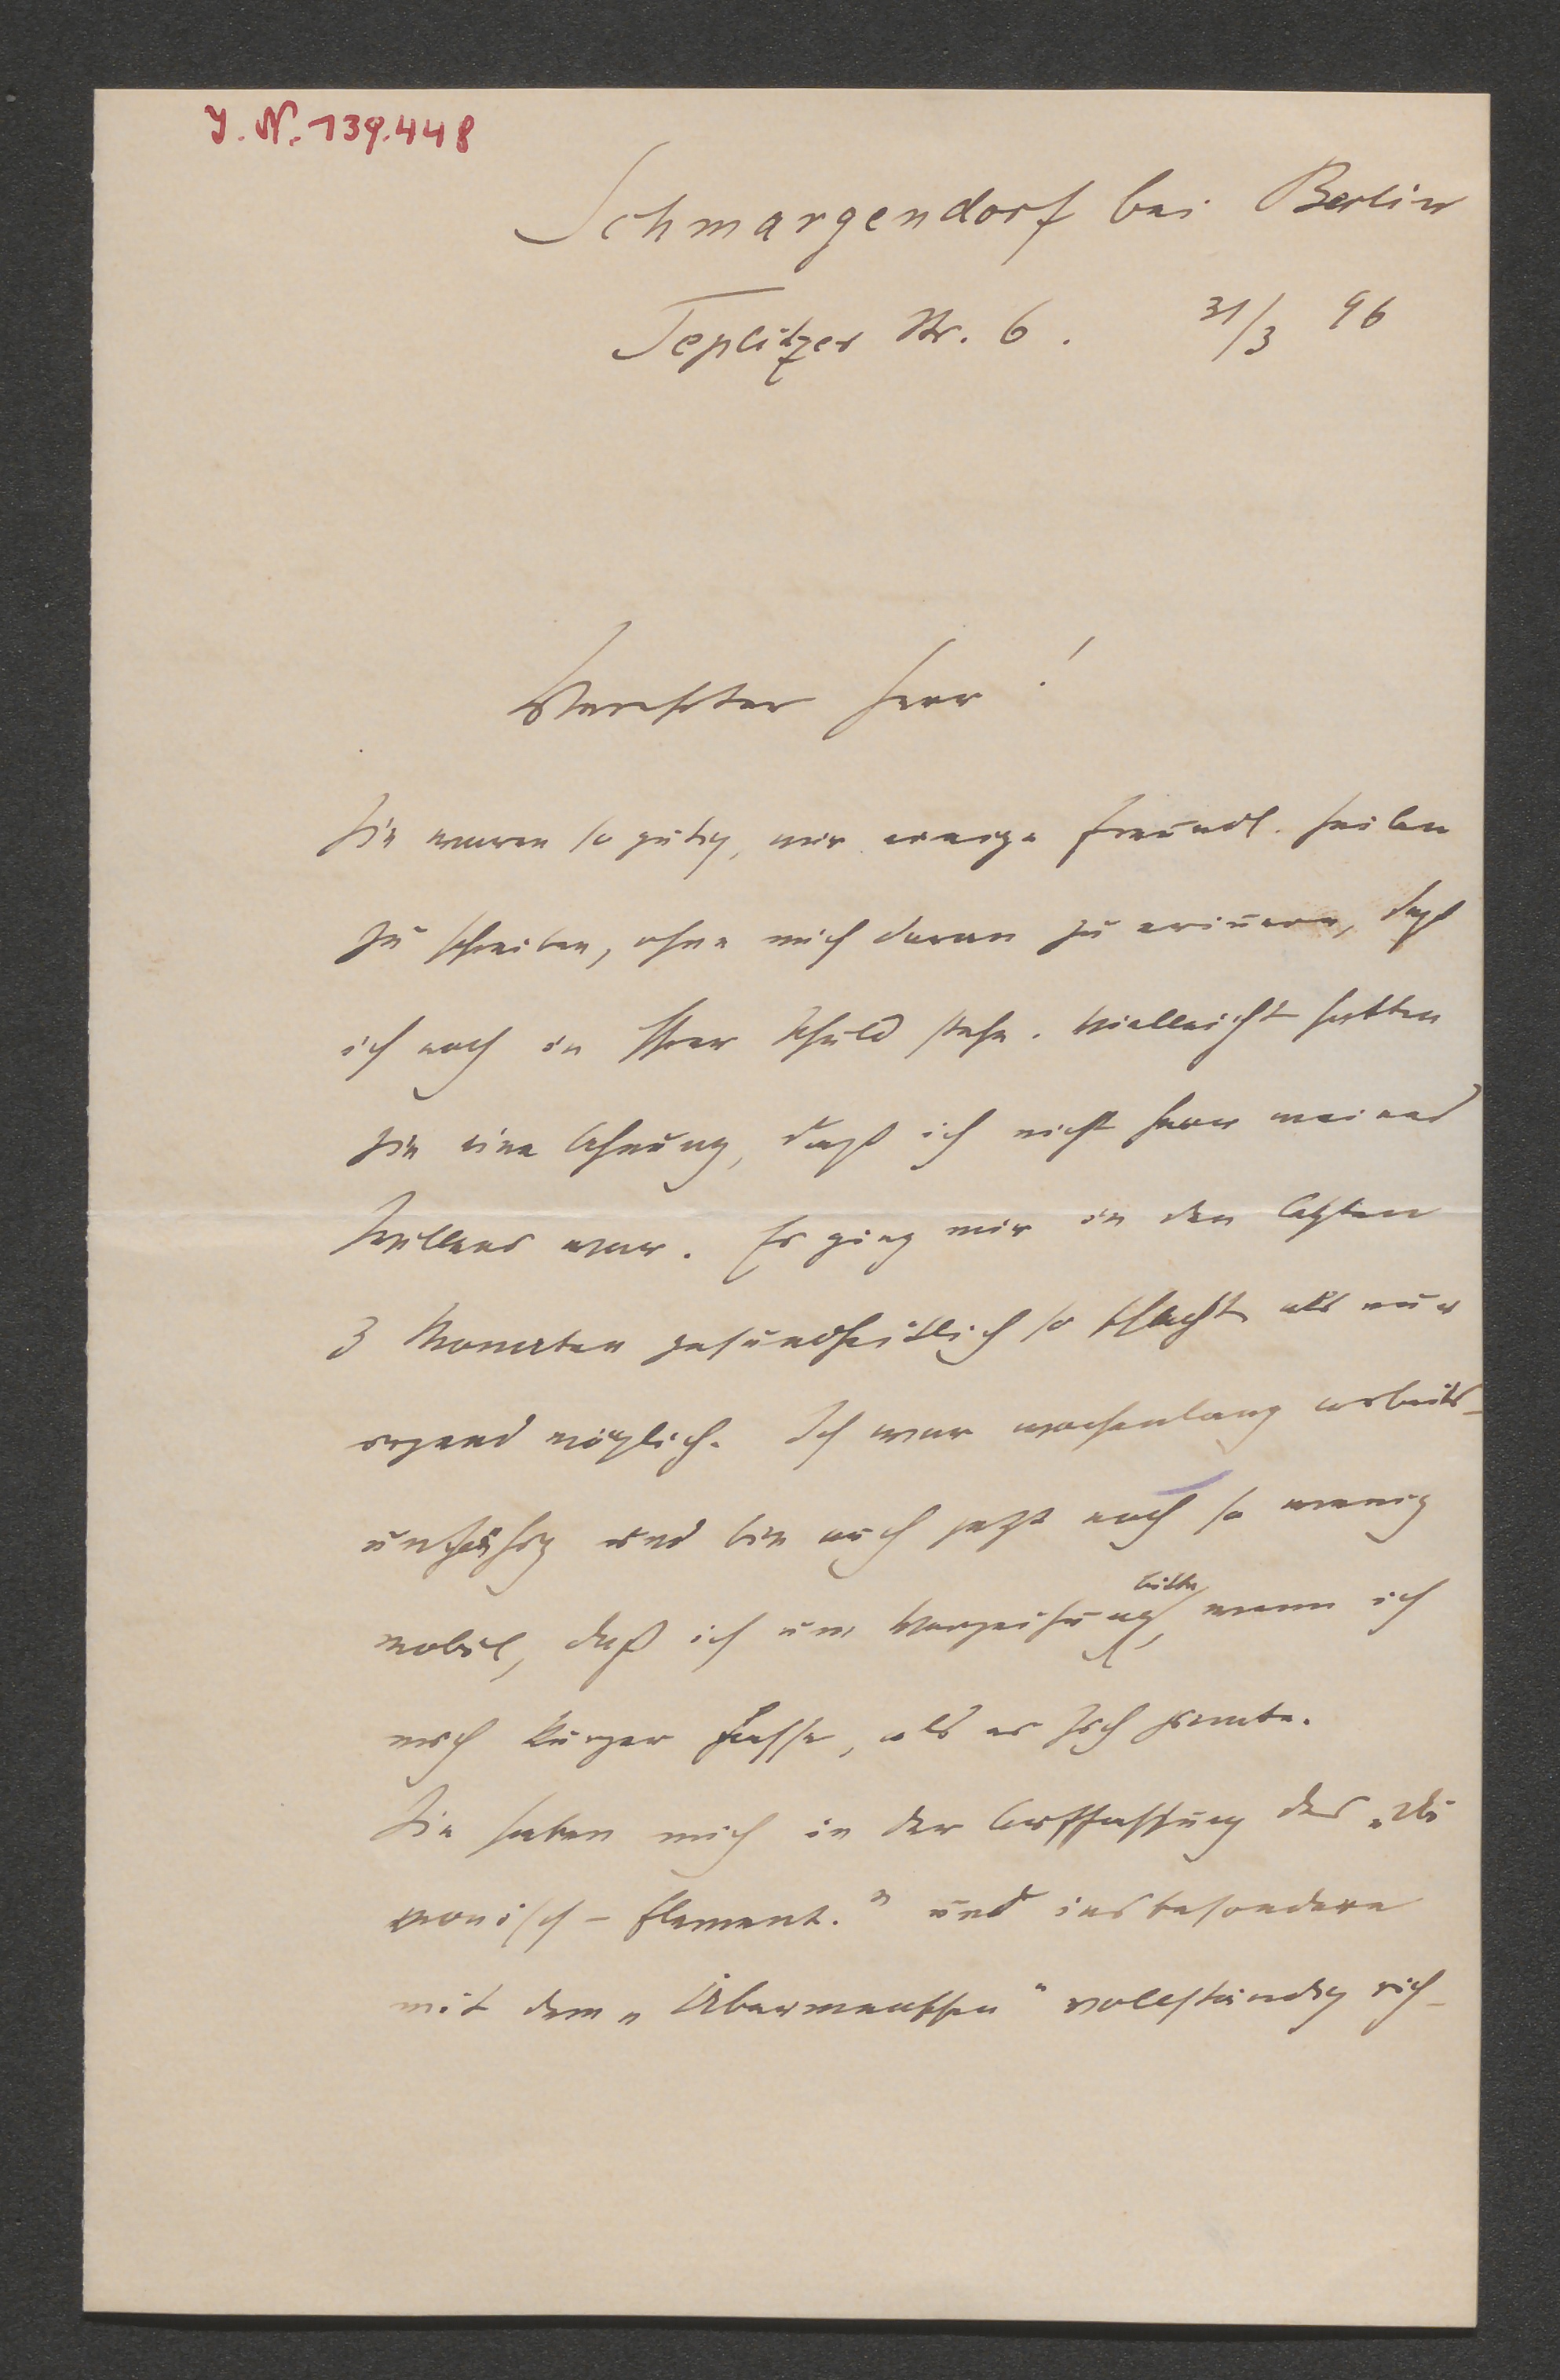 J. N. 139.448
Schmargendorf bei Berlin
Teplitzer Str. 6. 31/3 96
Verehrter Herr!
Sie waren so gütig, mir einige freundl. Zeilen
zu schreiben, ohne mich daran zu erinern, daß
ich noch in Ihrer Schuld stehe. Vielleicht hatten
Sie eine Ahnung, daß ich nicht Herr meines
Willens war. Es ging mir in den letzten
3 Monaten gesundheitlich so schlecht als nur
irgend möglich. Ich war wochenlang arbeits-
unfähig und bin auch jetzt noch so wenig
mobil, daß ich um Verzeihung bitte, wenn ich
mich kürzer fasse, als es sich ziemte.
Sie haben mich in der Auffassung des „Dä
monisch-Element." und insbesondere
mit dem „Übermenschen" vollständig rich-